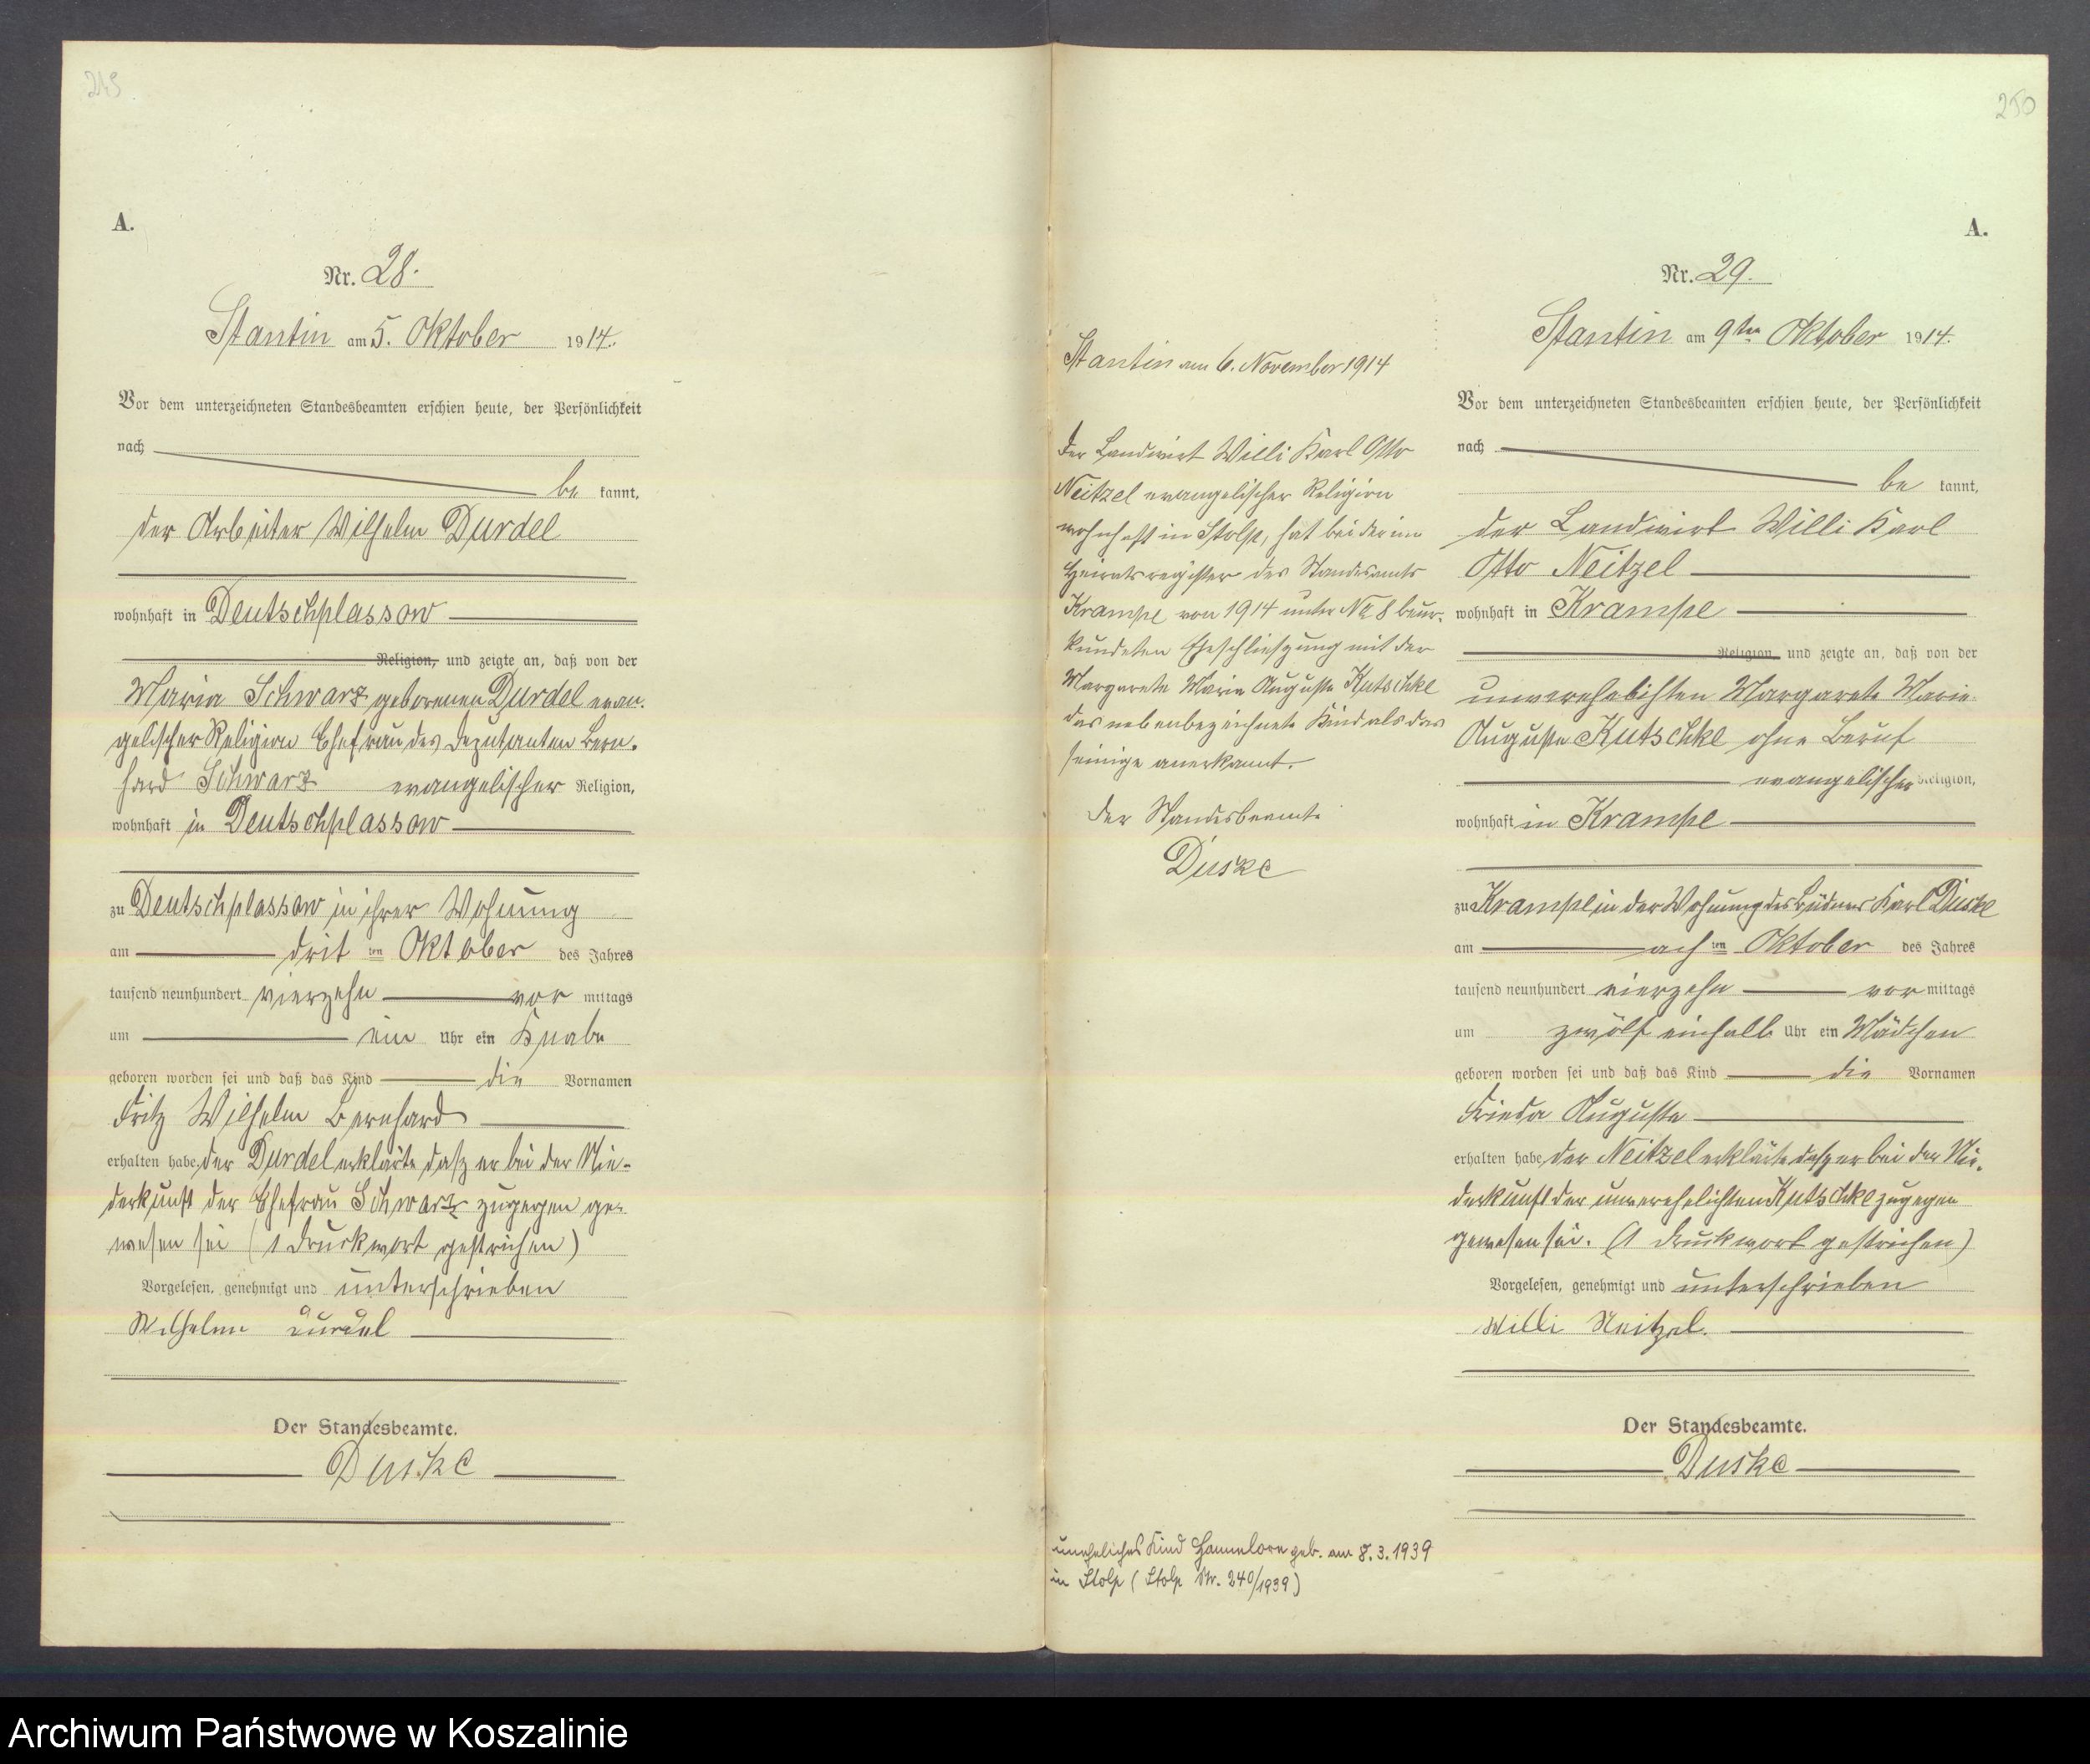 249
A.
Nr. 28.
Stantin am 5. Oktober 1914.
Vor dem unterzeichneten Standesbeamten erschien heute, der Persönlichkeit
nach
be kannt,
der Arbeiter Wilhelm Durdel
wohnhaft in Deutschplassow
Religion, und zeigte an, daß von der
Maria Schwarz geborenen Durdel evan-
gelischer Religion Ehefrau des Deputanten Bern-
hard Schwarz evangelischer Religion,
wohnhaft in Deutschplassow
zu Deutschplassow in ihrer Wohnung
am drit ten Oktober des Jahres
tausend neunhundert vierzehn vor mittags
um ein Uhr ein Knabe
geboren worden sei und daß das Kind die Vornamen
Fritz Wilhelm Bernhard
erhalten habe, der Durdel erklärte, dasz er bei der Nie-
derkunft der Ehefrau Schwarz zugegen ge-
wesen sei (1 Druckwort gestrichen)
Vorgelesen, genehmigt und unterschrieben
Wilhelm Durdel
Der Standesbeamte.
Duske
250
Stantin am 6. November 1914
Der Landwirt Willi Karl Otto
Neitzel evangelischer Religion
wohnhaft in Stolp, hat bei der im
Heiratsregister des Standesamts
Krampe von 1914 unter No 8 beur-
kundeten Eheschlieszung mit der
Margarete Marie Auguste Kutschke
das nebenbezeichnete Kind als das
seinige anerkannt.
Der Standesbeamte
Duske
uneheliches Kind Hannelore geb. am 8.3.1939
in Stolp (Stolp Nr. 240/1939)
A.
Nr. 29.
Stantin am 9ten Oktober 1914.
Vor dem unterzeichneten Standesbeamten erschien heute, der Persönlichkeit
nach
be kannt,
der Landwirt Willi Karl
Otto Neitzel
wohnhaft in Krampe
Religion, und zeigte an, daß von der
unverehelichten Margarete Marie
Auguste Kutschke ohne Beruf
evangelischer Religion,
wohnhaft in Krampe
zu Krampe in der Wohnung des Büdners Karl Duske
am ach ten Oktober des Jahres
tausend neunhundert vierzehn vor mittags
um zwölf einhalb Uhr ein Mädchen
geboren worden sei und daß das Kind die Vornamen
Frieda Auguste
erhalten habe, der Neitzel erklärte dasz er bei der Nie-
derkunft der unverehelichten Kutschke zugegen
gewesen sei. (1 Druckwort gestrichen)
Vorgelesen, genehmigt und unterschrieben
Willi Neitzel.
Der Standesbeamte.
Duske
Archiwum Państwowe w Koszalinie